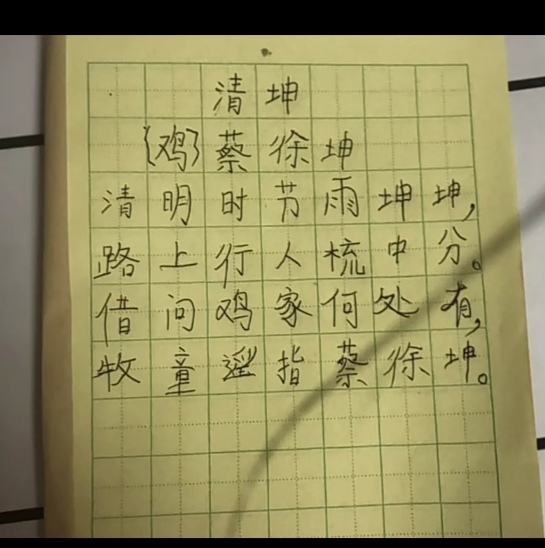 清坤
(鸡)蔡徐坤
清明时节雨坤坤,
路上行人梳中分。
借问鸡家何处有,
牧童遥指蔡徐坤。